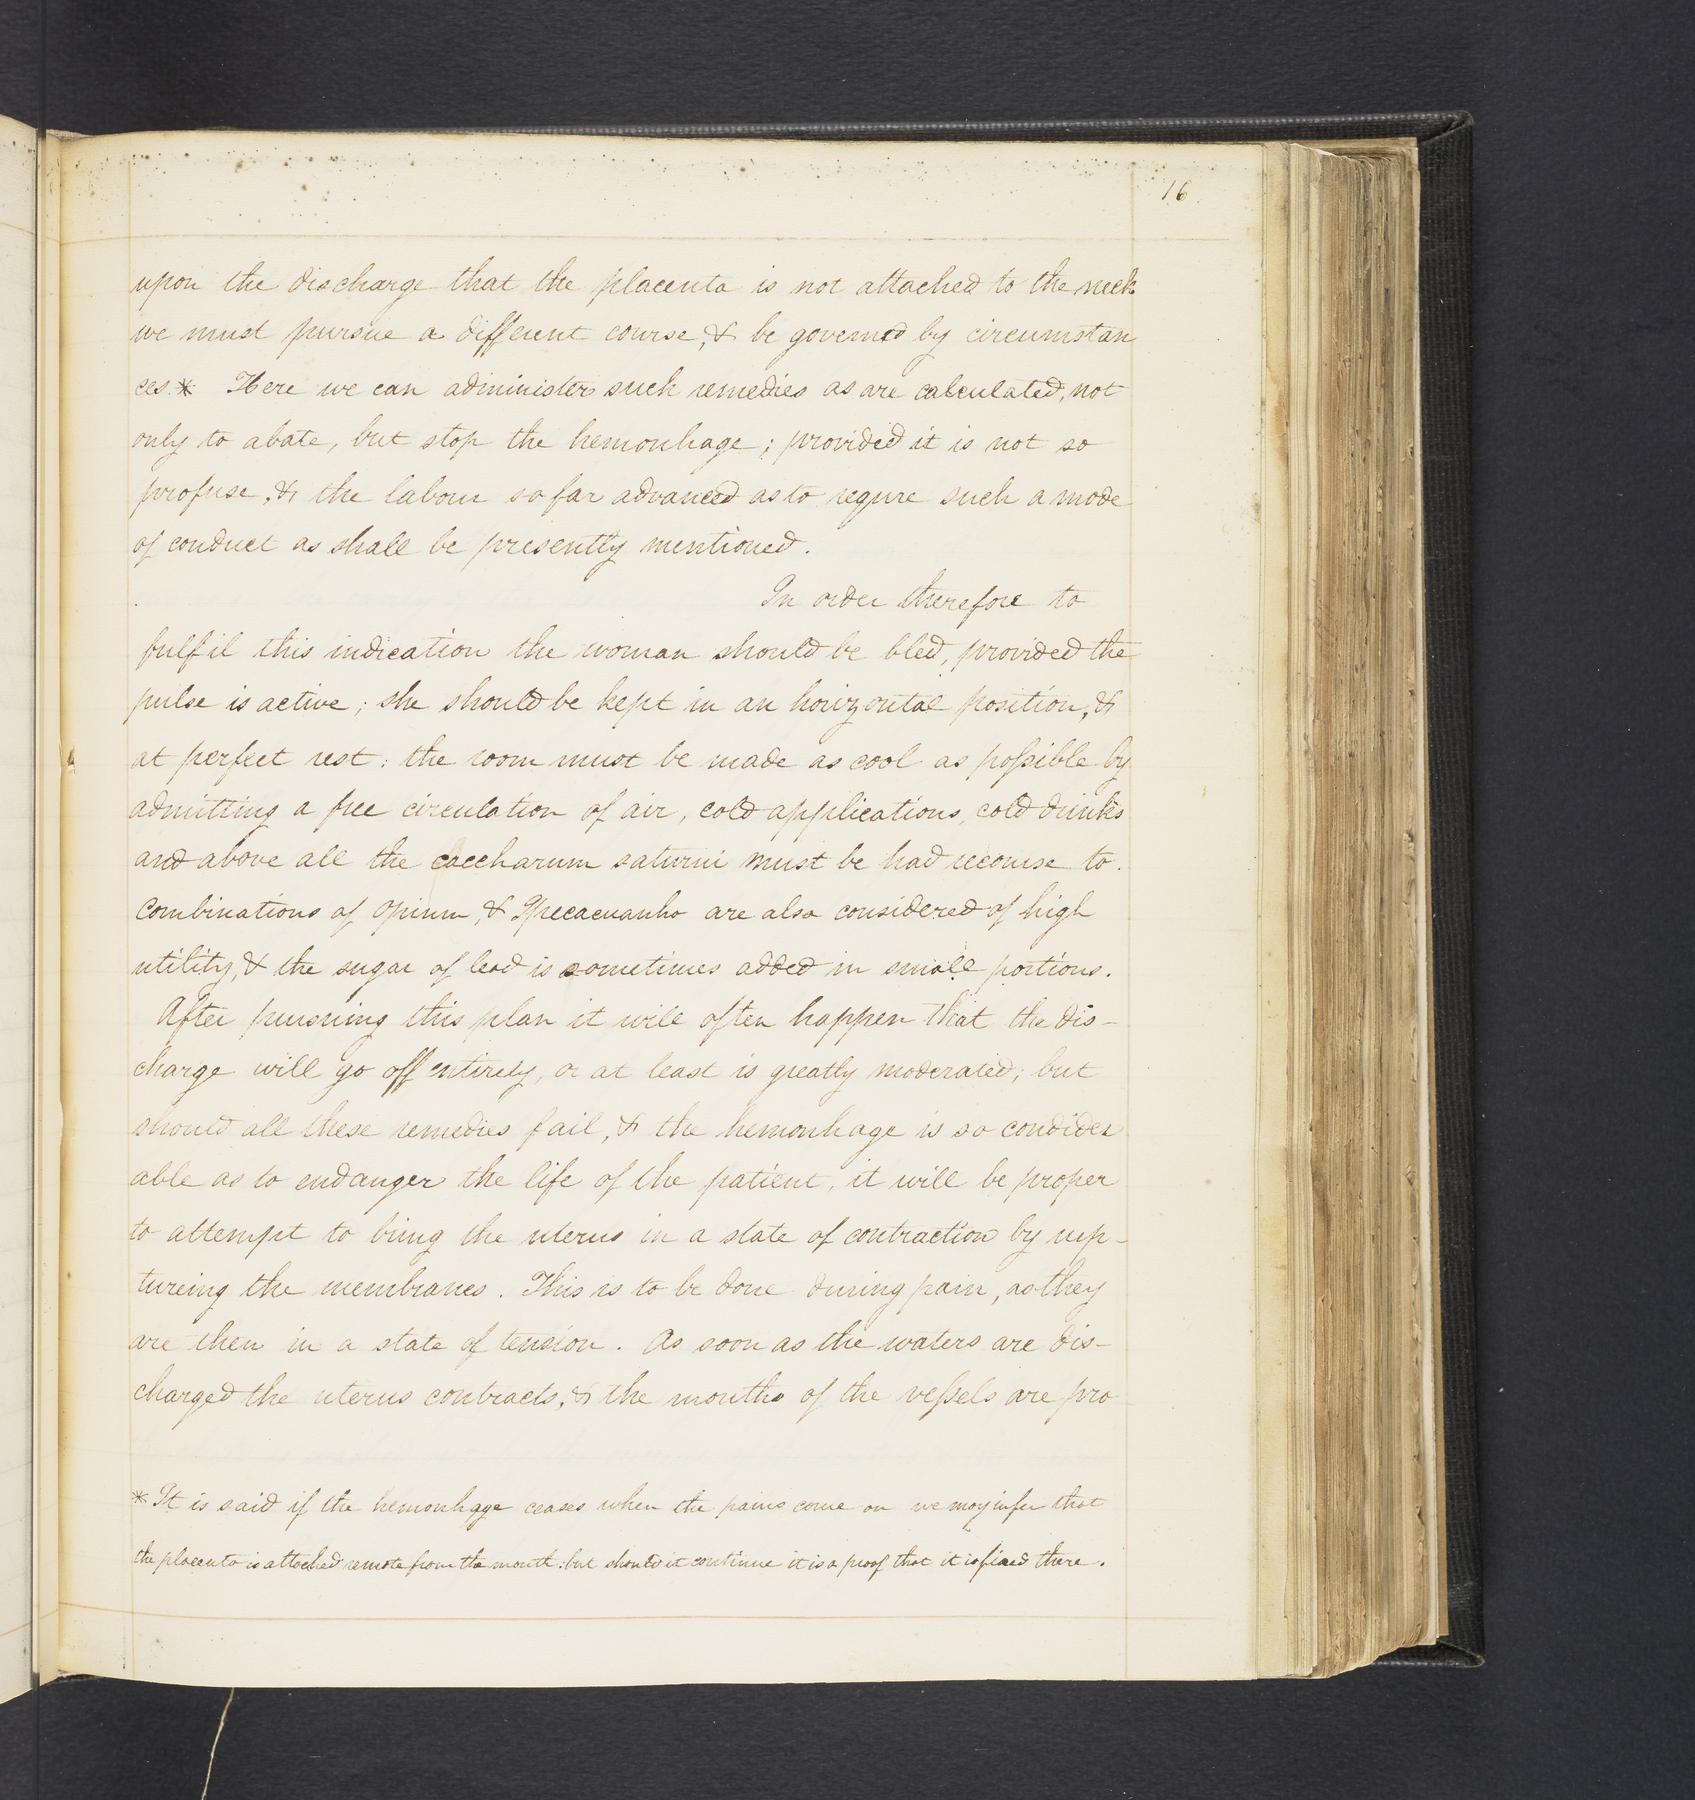 16
upon the discharge that the placenta is not attached to the neck
we must pursue a different course, & be governed by circumstan
ces.* Here we can administer such remedies as are calculated, not
only to abate, but stop the hemorrhage; provided it is not so
profuse, & the labour so far advanced as to requre such a mode
of conduct as shall be presently mentioned.
In order therefore to
fulfil this indication the woman should be bled, provided the
pulse is active; she should be kept in an horizontal position, &
at perfect rest: the room must be made as cool as poſsible by
admitting a free circulation of air, cold applications, cold drinks
and above all the caccharum saturni must be had recourse to.
Combinations of opium, & Ipecacuanha are also considered of high
utility, & the sugar of lead is sometimes added in small portions.
After pursuing this plan it will often happen that the dis-
charge will go off entirely, or at least is greatly moderated; but
should all these remedies fail, & the hemorrhage is so condider
able as to endanger the life of the patient, it will be proper
to attempt to bring the uterus in a state of contraction by rup-
tureing the membranes. This is to be done during pain, as they
are then in a state of tension. As soon as the waters are dis-
charged the uterus contracts, & the mouths of the veſsels are pro
* It is said if the hemorrhage ceases when the pains come on we may infer that
the placenta is attached remote from the mouth: but should it continue it is a proof that it is fixed there.